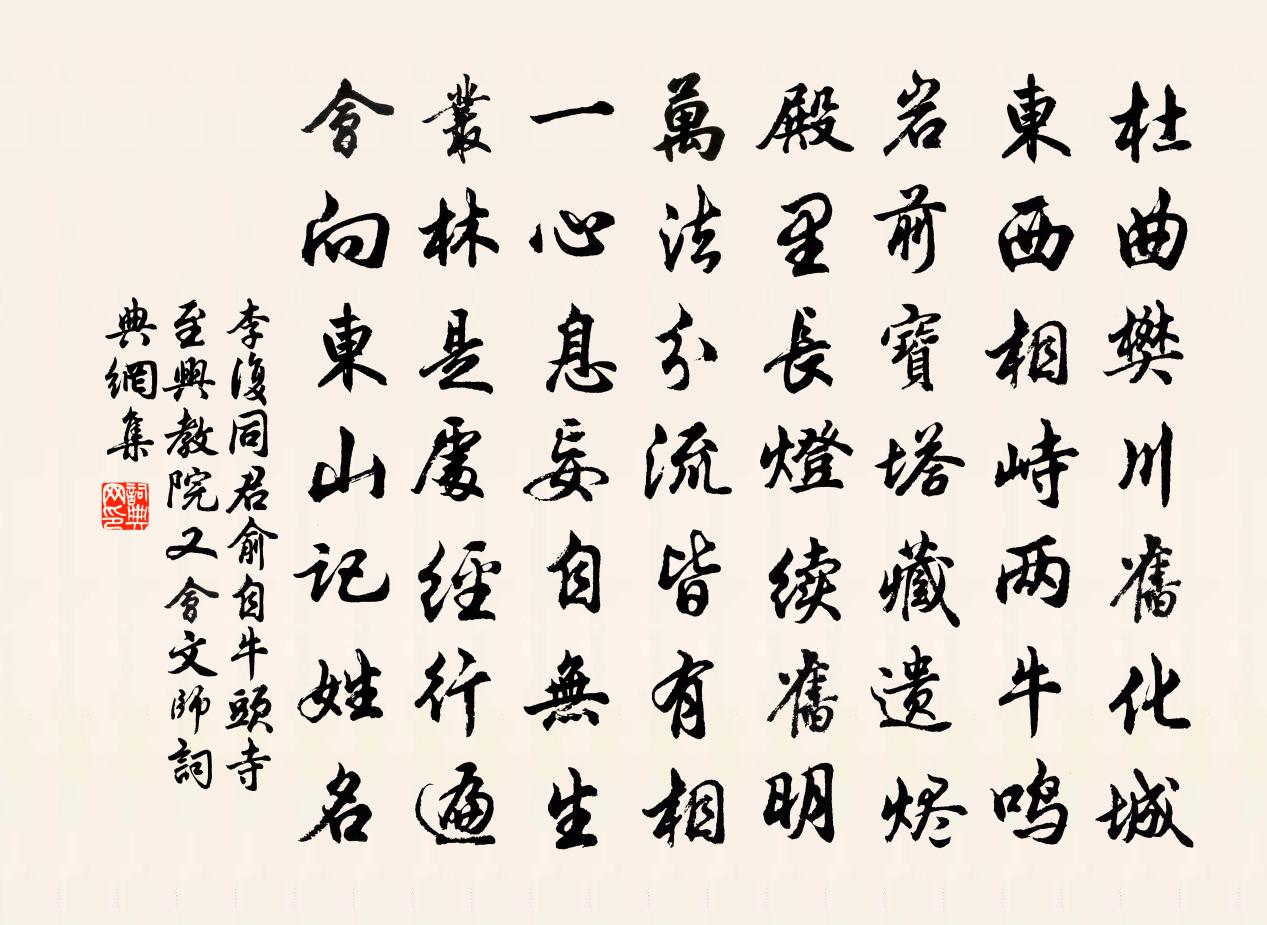 杜曲樊川舊化城
東西相峙两牛鸣
岩前寶塔藏遗烬
殿里長燈续舊明
萬法分流皆有相
一心息妄自無生
叢林是處經行遍
會向東山記姓名
李復同君俞自牛頭寺
至興教院又會文師詞
典網集
詞典网印